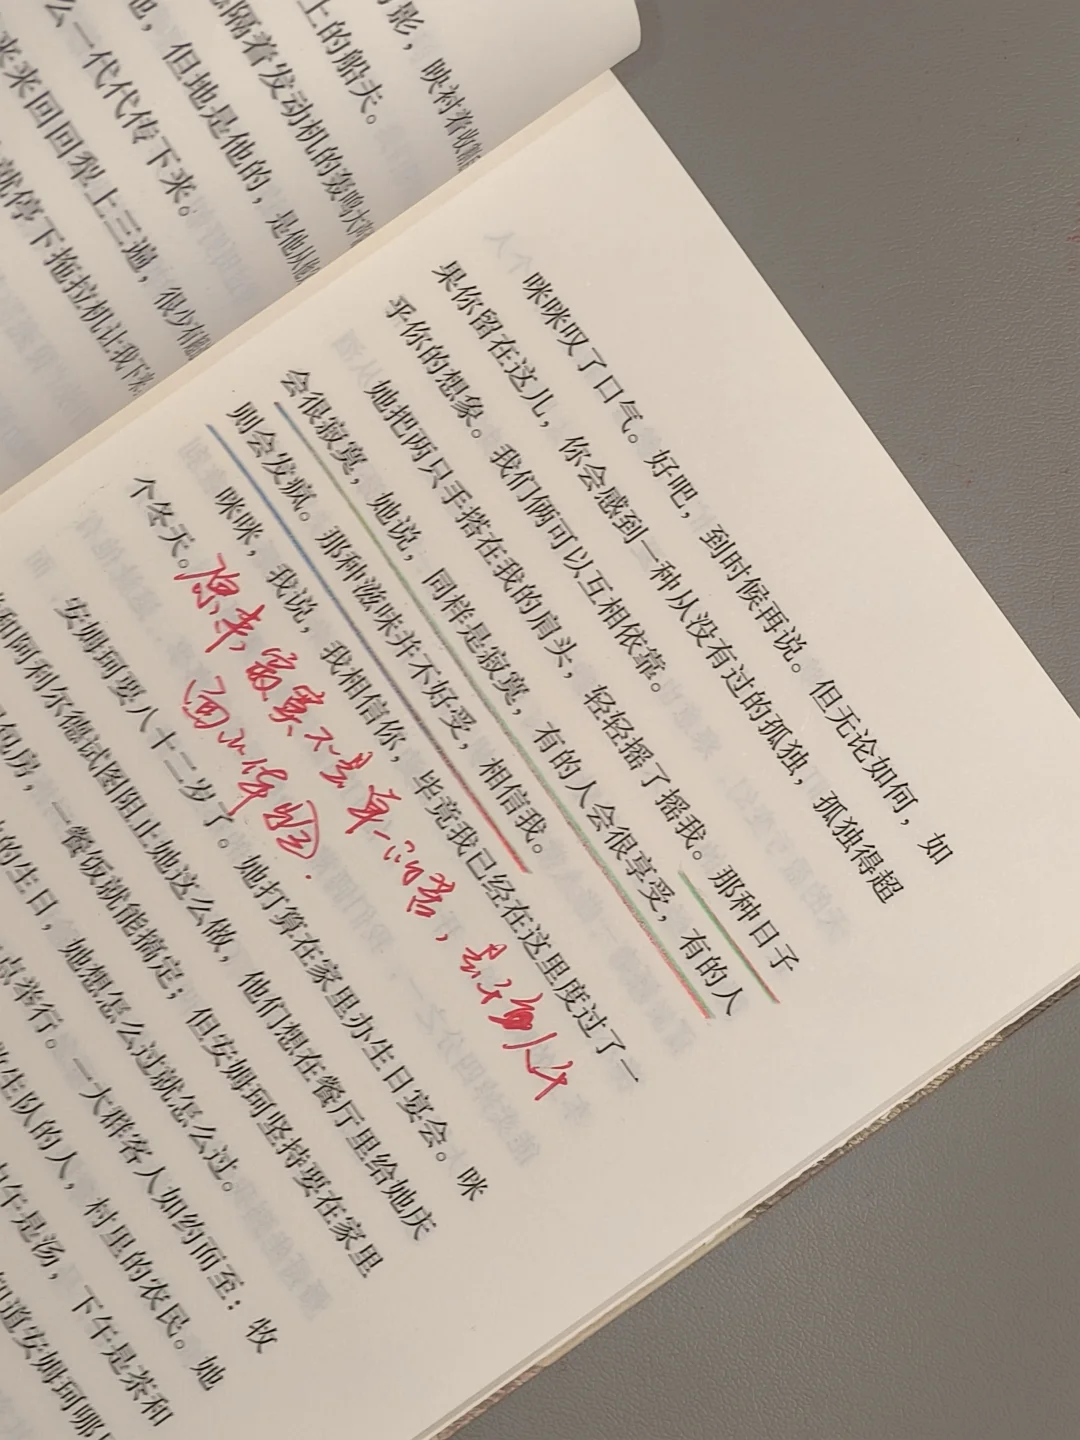 影，映衬着收割
上的船夫。
隔着发动机的轰鸣大
但地是他的，是他从他
么一代代传下来。
来来回回犁上三遍，很少有
就停下拖拉机让我下来
咪咪叹了口气。好吧，到时候再说。但无论如何，如
果你留在这儿，你会感到一种从没有过的孤独，孤独得超
乎你的想象。我们俩可以互相依靠。
她把两只手搭在我的肩头，轻轻摇了摇我。那种日子
会很寂寞，她说，同样是寂寞，有的人会很享受，有的人
则会发疯。那种滋味并不好受，相信我。
咪咪，我说，我相信你，毕竟我已经在这里度过了一
个冬天。
原来，寂寞不是单一的苦，是
安姆珂要八十二岁了。她打算在家里办生日宴会。咪
和阿利尔德试图阻止她这么做，他们想在餐厅里给她庆
包房，一餐饭就能搞定；但安姆珂坚持要在家里
的生日，她想怎么过就怎么过。
点举行。一大群客人如约而至：牧
生队的人，村里的农民。她
午是汤，下午是茶和
知道安姆珂哪